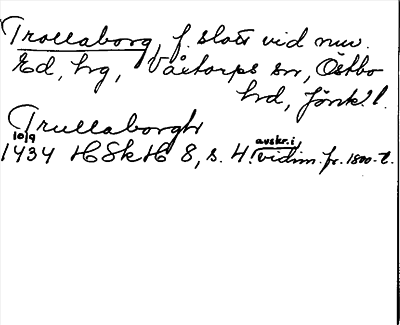 Trollaborg, f. slott vid nuv.
Ed, hg, Våthorps sn, Östbo
hd, Jönk. l.
Trullaborgh
10/9
1434 HSkH 8, s. 4. avskr. i vidim. fr. 1800-t.